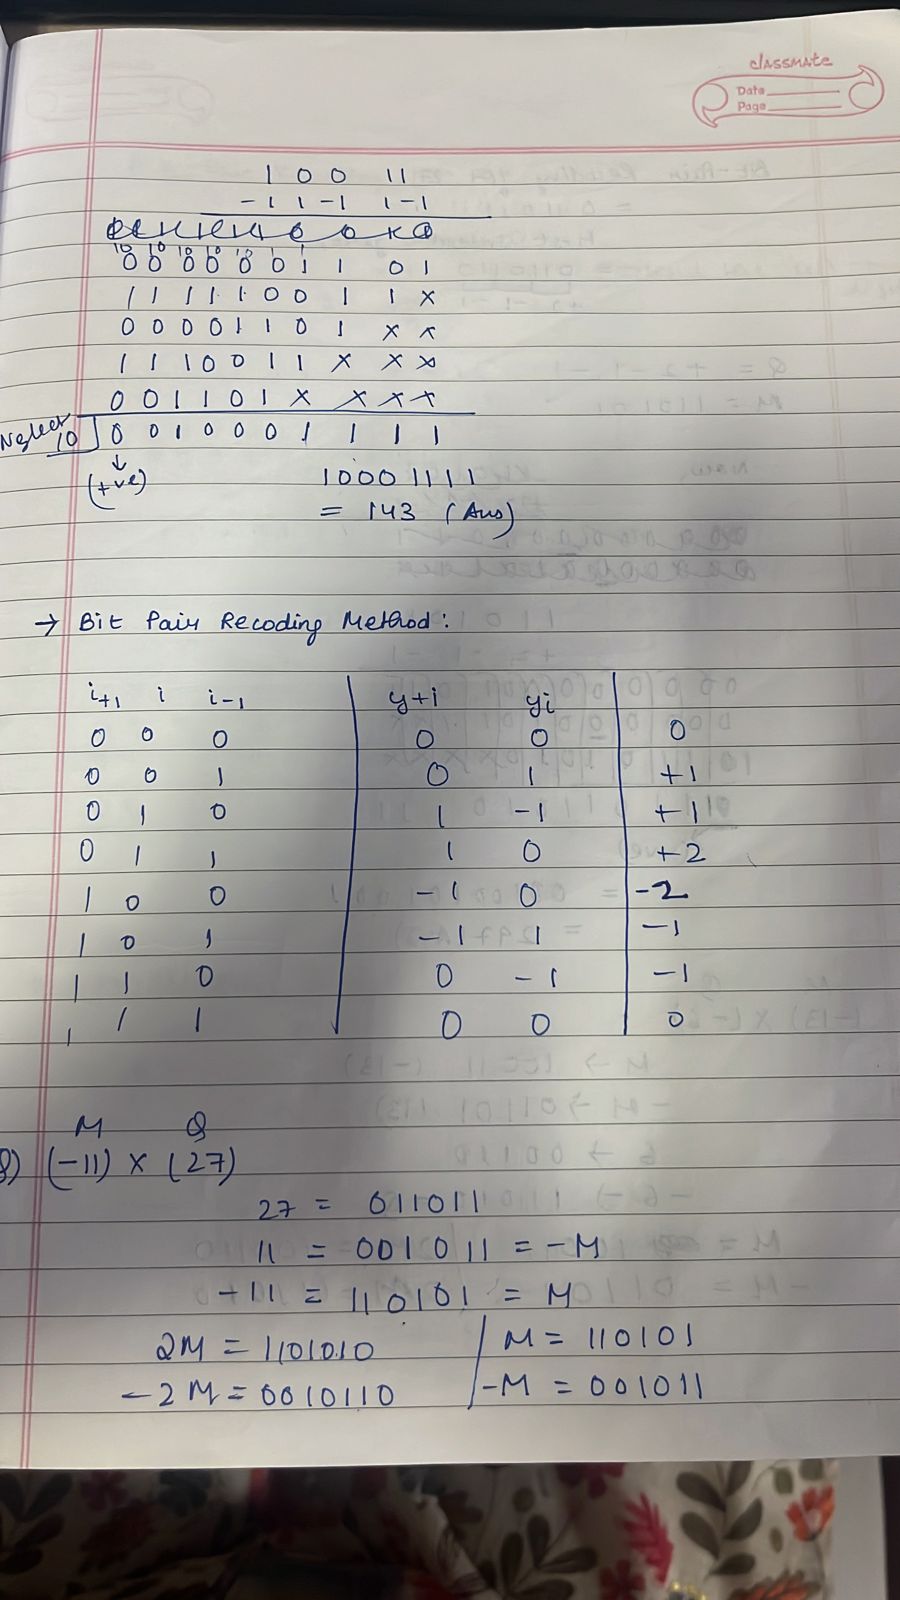 classmate
Date
Page
1 0 0 1 1
-1 1 -1 1 -1
10 10 10 10 10 1 1
0 0 0 0 0 0 1 1 0 1
1 1 1 1 1 0 0 1 1 x
0 0 0 0 1 1 0 1 x x
1 1 1 0 0 1 1 x x x
0 0 1 1 0 1 x x x x
Neglect 10 0 0 1 0 0 0 1 1 1 1
↓
(+ve) 10001111
= 143 (Ans)
→ Bit Pair Recoding Method:
i+1 i i-1 y+i yi
0 0 0 0 0 0
0 0 1 0 1 +1
0 1 0 1 -1 +1
0 1 1 1 0 +2
1 0 0 -1 0 -2
1 0 1 -1 1 -1
1 1 0 0 -1 -1
1 1 1 0 0 0
M Q
Q) (-11) x (27)
27 = 011011
11 = 001011 = -M
-11 = 110101 = M
2M = 1101010 M = 110101
-2M = 0010110 -M = 001011